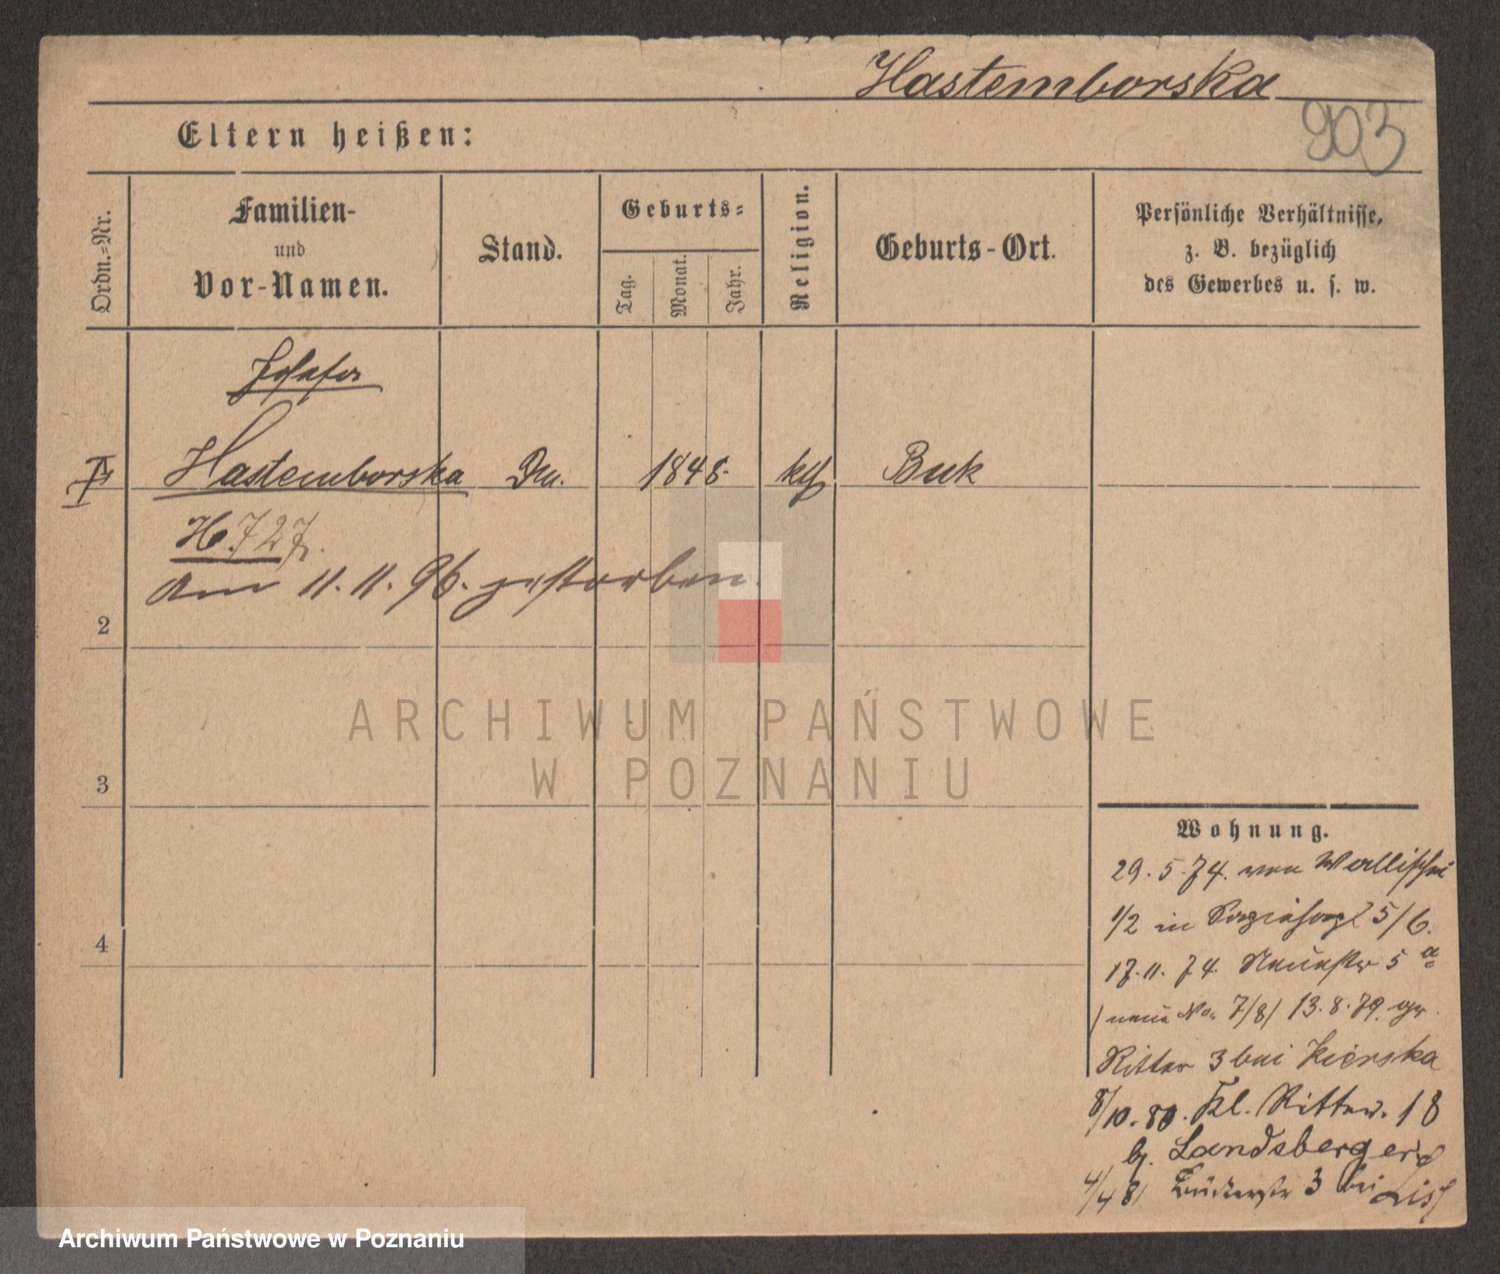 Hastemborska
903
Eltern heißen:
Ordn.-Nr.
Familien-
und
Vor-Namen.
Stand.
Geburts-
Tag.
Monat.
Jahr.
Religion.
Geburts-Ort.
Persönliche Verhältnisse,
z. B. bezüglich
des Gewerbes u. s. w.
Josefa
Hastemborska 1848. kth Buk
H. 727.
Am 11. 11. 96. gestorben.
2
3
4
ARCHIWUM PAŃSTWOWE
W POZNANIU
Wohnung.
29. 5. 74. von Wallischei
1/2 in 5/6.
17. 11. 74. 5 a
neue No. 7/8/ 13. 8. 79. gr.
Ritter 3 bei
8/10. 80. Kl. Ritter. 18
b. Landsberger
4/4 81 3 bei
Archiwum Państwowe w Poznaniu